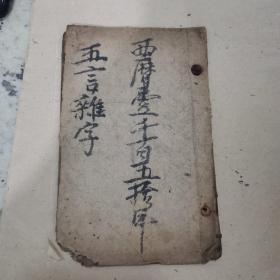 西曆壹千百五拾年
五言雜字